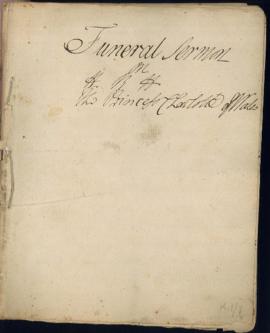 Funeral Sermon
on
The Princess Charlotte of Wales